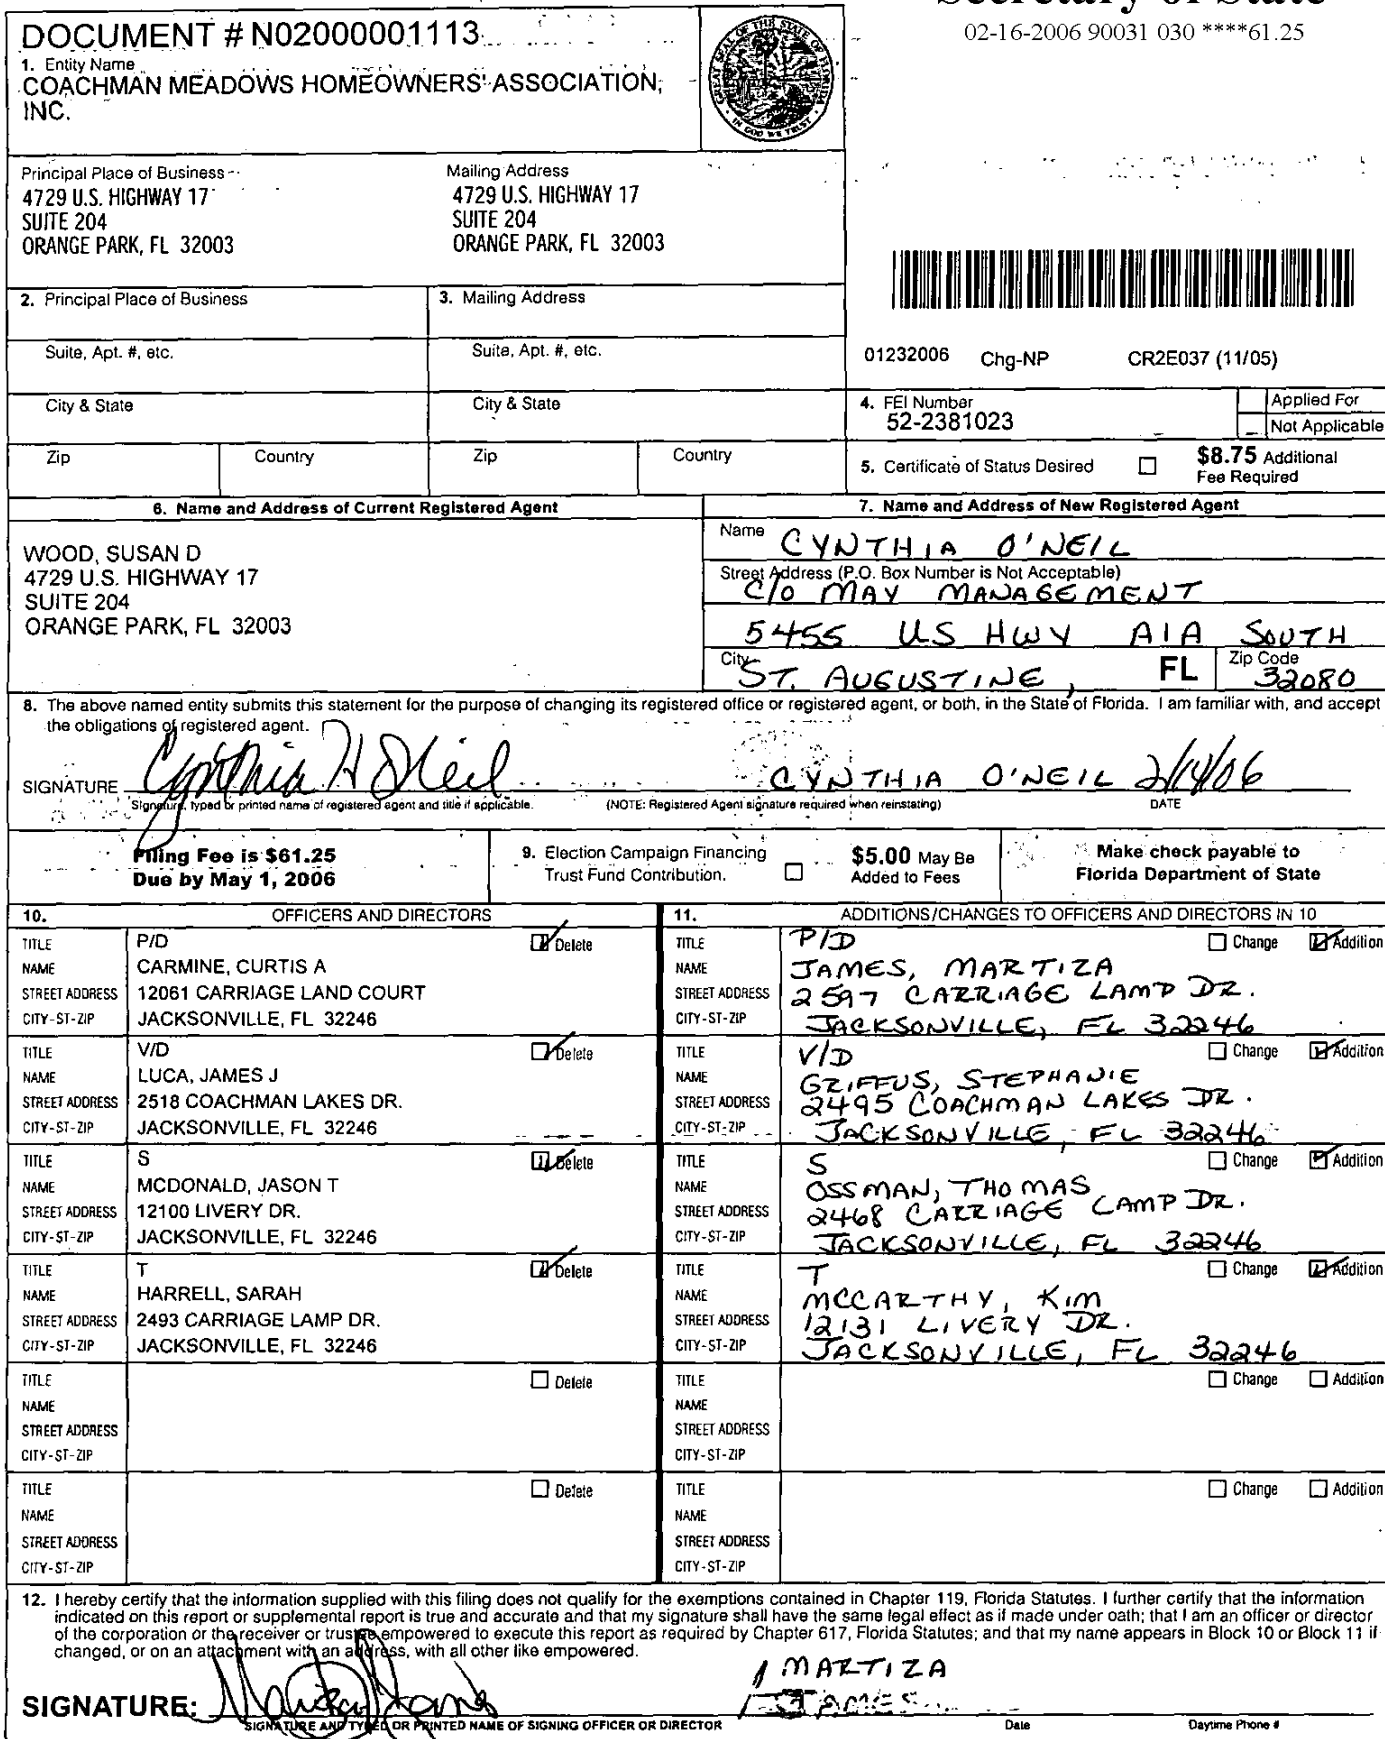 Secretary of State
02-16-2006 90031 030 ****61.25
DOCUMENT # N02000001113
1. Entity Name
COACHMAN MEADOWS HOMEOWNERS' ASSOCIATION,
INC.
GREAT SEAL OF THE STATE OF FLORIDA
IN GOD WE TRUST
Principal Place of Business
4729 U.S. HIGHWAY 17
SUITE 204
ORANGE PARK, FL 32003
Mailing Address
4729 U.S. HIGHWAY 17
SUITE 204
ORANGE PARK, FL 32003
2. Principal Place of Business
3. Mailing Address
Suite, Apt. #, etc.
Suite, Apt. #, etc.
City & State
City & State
Zip Country Zip Country
01232006 Chg-NP CR2E037 (11/05)
4. FEI Number
52-2381023
Applied For
Not Applicable
5. Certificate of Status Desired
$8.75 Additional
Fee Required
6. Name and Address of Current Registered Agent
WOOD, SUSAN D
4729 U.S. HIGHWAY 17
SUITE 204
ORANGE PARK, FL 32003
7. Name and Address of New Registered Agent
Name CYNTHIA O'NEIL
Street Address (P.O. Box Number is Not Acceptable)
C/O MAY MANAGEMENT
5455 US HWY A1A SOUTH
City ST. AUGUSTINE, FL Zip Code 32080
8. The above named entity submits this statement for the purpose of changing its registered office or registered agent, or both, in the State of Florida. I am familiar with, and accept
the obligations of registered agent.
SIGNATURE Cynthia H O'Neil CYNTHIA O'NEIL 2/14/06
Signature, typed or printed name of registered agent and title if applicable. (NOTE: Registered Agent signature required when reinstating) DATE
Filing Fee is $61.25
Due by May 1, 2006
9. Election Campaign Financing
Trust Fund Contribution.
$5.00 May Be
Added to Fees
Make check payable to
Florida Department of State
10. OFFICERS AND DIRECTORS
TITLE P/D Delete
NAME CARMINE, CURTIS A
STREET ADDRESS 12061 CARRIAGE LAND COURT
CITY-ST-ZIP JACKSONVILLE, FL 32246
TITLE V/D Delete
NAME LUCA, JAMES J
STREET ADDRESS 2518 COACHMAN LAKES DR.
CITY-ST-ZIP JACKSONVILLE, FL 32246
TITLE S Delete
NAME MCDONALD, JASON T
STREET ADDRESS 12100 LIVERY DR.
CITY-ST-ZIP JACKSONVILLE, FL 32246
TITLE T Delete
NAME HARRELL, SARAH
STREET ADDRESS 2493 CARRIAGE LAMP DR.
CITY-ST-ZIP JACKSONVILLE, FL 32246
TITLE Delete
NAME
STREET ADDRESS
CITY-ST-ZIP
TITLE Delete
NAME
STREET ADDRESS
CITY-ST-ZIP
11. ADDITIONS/CHANGES TO OFFICERS AND DIRECTORS IN 10
TITLE P/D Change Addition
NAME JAMES, MARTIZA
STREET ADDRESS 2597 CARRIAGE LAMP DR.
CITY-ST-ZIP JACKSONVILLE, FL 32246
TITLE V/D Change Addition
NAME GRIFFUS, STEPHANIE
STREET ADDRESS 2495 COACHMAN LAKES DR.
CITY-ST-ZIP JACKSONVILLE, FL 32246
TITLE S Change Addition
NAME OSSMAN, THOMAS
STREET ADDRESS 2468 CARRIAGE LAMP DR.
CITY-ST-ZIP JACKSONVILLE, FL 32246
TITLE T Change Addition
NAME MCCARTHY, KIM
STREET ADDRESS 12131 LIVERY DR.
CITY-ST-ZIP JACKSONVILLE, FL 32246
TITLE Change Addition
NAME
STREET ADDRESS
CITY-ST-ZIP
TITLE Change Addition
NAME
STREET ADDRESS
CITY-ST-ZIP
12. I hereby certify that the information supplied with this filing does not qualify for the exemptions contained in Chapter 119, Florida Statutes. I further certify that the information
indicated on this report or supplemental report is true and accurate and that my signature shall have the same legal effect as if made under oath; that I am an officer or director
of the corporation or the receiver or trustee empowered to execute this report as required by Chapter 617, Florida Statutes; and that my name appears in Block 10 or Block 11 if
changed, or on an attachment with an address, with all other like empowered.
MARTIZA
SIGNATURE: JAMES
SIGNATURE AND TYPED OR PRINTED NAME OF SIGNING OFFICER OR DIRECTOR Date Daytime Phone #